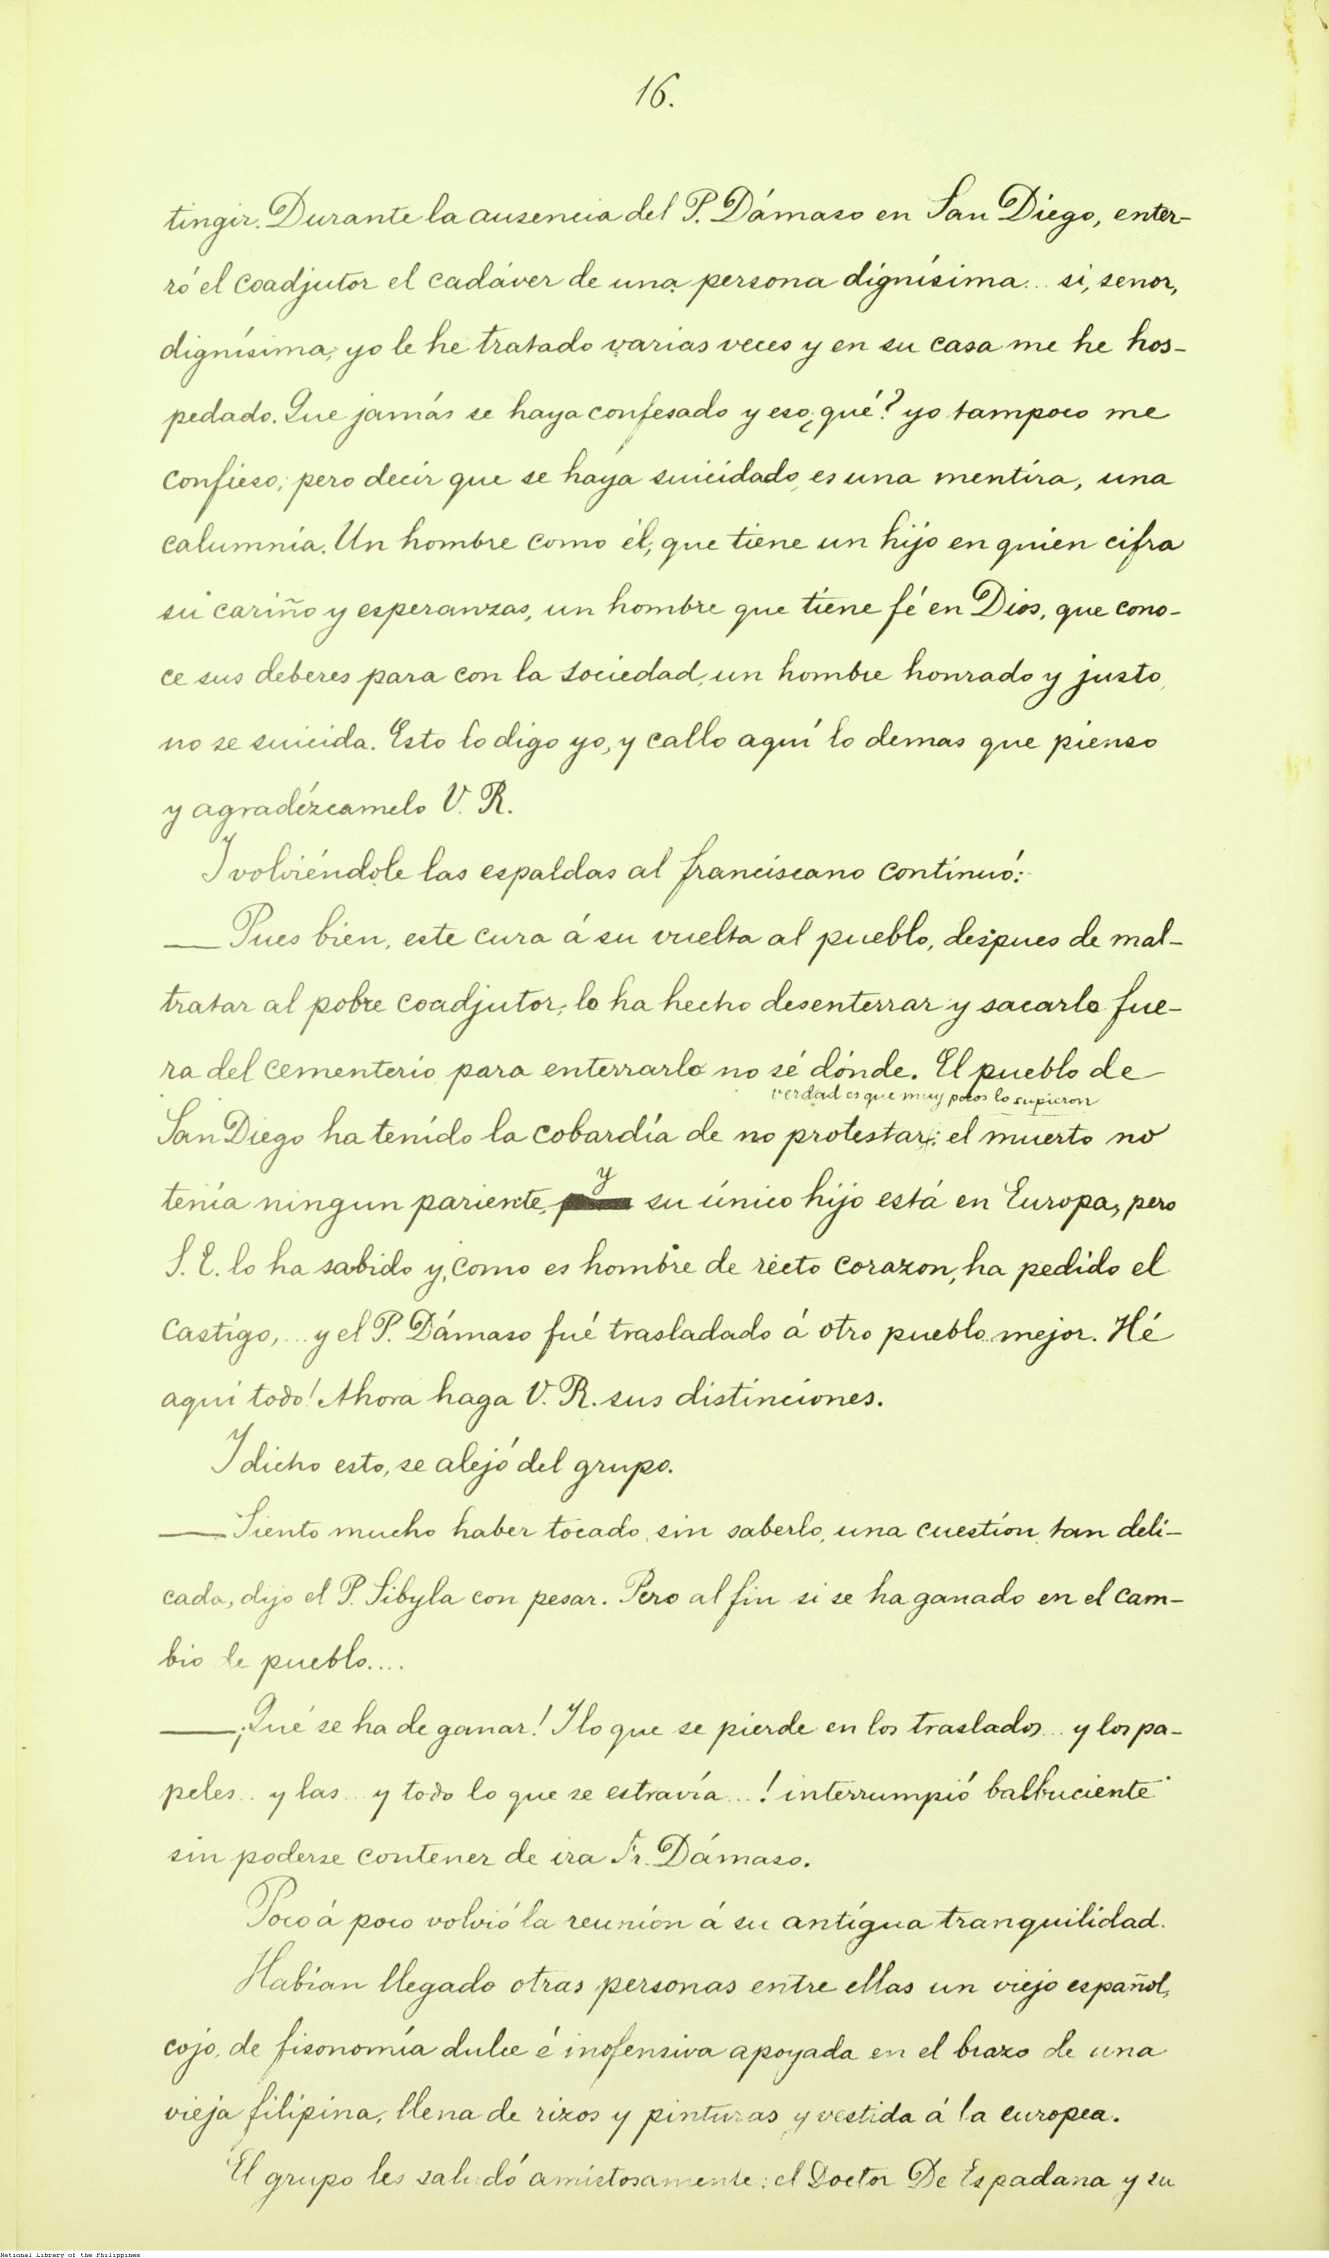 16.
tingir. Durante la ausencia del P. Dámaso en San Diego, enter-
ró el coadjutor el cadáver de una persona dignísima... si, senor,
dignísima, yo le he tratado varias veces y en su casa me he hos-
pedado. Que jamás se haya confesado y eso ¿qué? yo tampoco me
confieso, pero decir que se haya suicidado, es una mentira, una
calumnia. Un hombre como él, que tiene un hijo en quien cifra
su cariño y esperanzas, un hombre que tiene fé en Dios, que cono-
ce sus deberes para con la sociedad, un hombre honrado y justo,
no se suicida. Esto lo digo yo, y callo aquí lo demas que pienso
y agradézcamelo V. R.
Y volviéndole las espaldas al franciscano continuó:
— Pues bien, este cura á su vuelta al pueblo, despues de mal-
tratar al pobre coadjutor, lo ha hecho desenterrar y sacarlo fue-
ra del cementerio para enterrarlo no sé dónde. El pueblo de
verdad es que muy pocos lo supieron
San Diego ha tenido la cobardía de no protestar; el muerto no
y
tenía ningun pariente, su único hijo está en Europa, pero
S. E. lo ha sabido y, como es hombre de recto corazon, ha pedido el
castigo,... y el P. Dámaso fué trasladado á otro pueblo mejor. Hé
aqui todo! Ahora haga V. R. sus distinciones.
Y dicho esto, se alejó del grupo.
— Siento mucho haber tocado, sin saberlo, una cuestión tan deli-
cada, dijo el P. Sibyla con pesar. Pero al fin si se ha ganado en el cam-
bio de pueblo....
— ¡Qué se ha de ganar! Y lo que se pierde en los traslados... y los pa-
peles.. y las... y todo lo que se estravía...! interrumpió balbuciente
sin poderse contener de ira Fr. Dámaso.
Poco á poco volvió la reunión á su antígua tranquilidad.
Habían llegado otras personas entre ellas un viejo español,
cojo, de fisonomía dulce é inofensiva apoyada en el brazo de una
vieja filipina, llena de rizos y pinturas y vestida á la europea.
El grupo les saludó amistosamente: el Doctor De Espadana y su
National Library of the Philippines